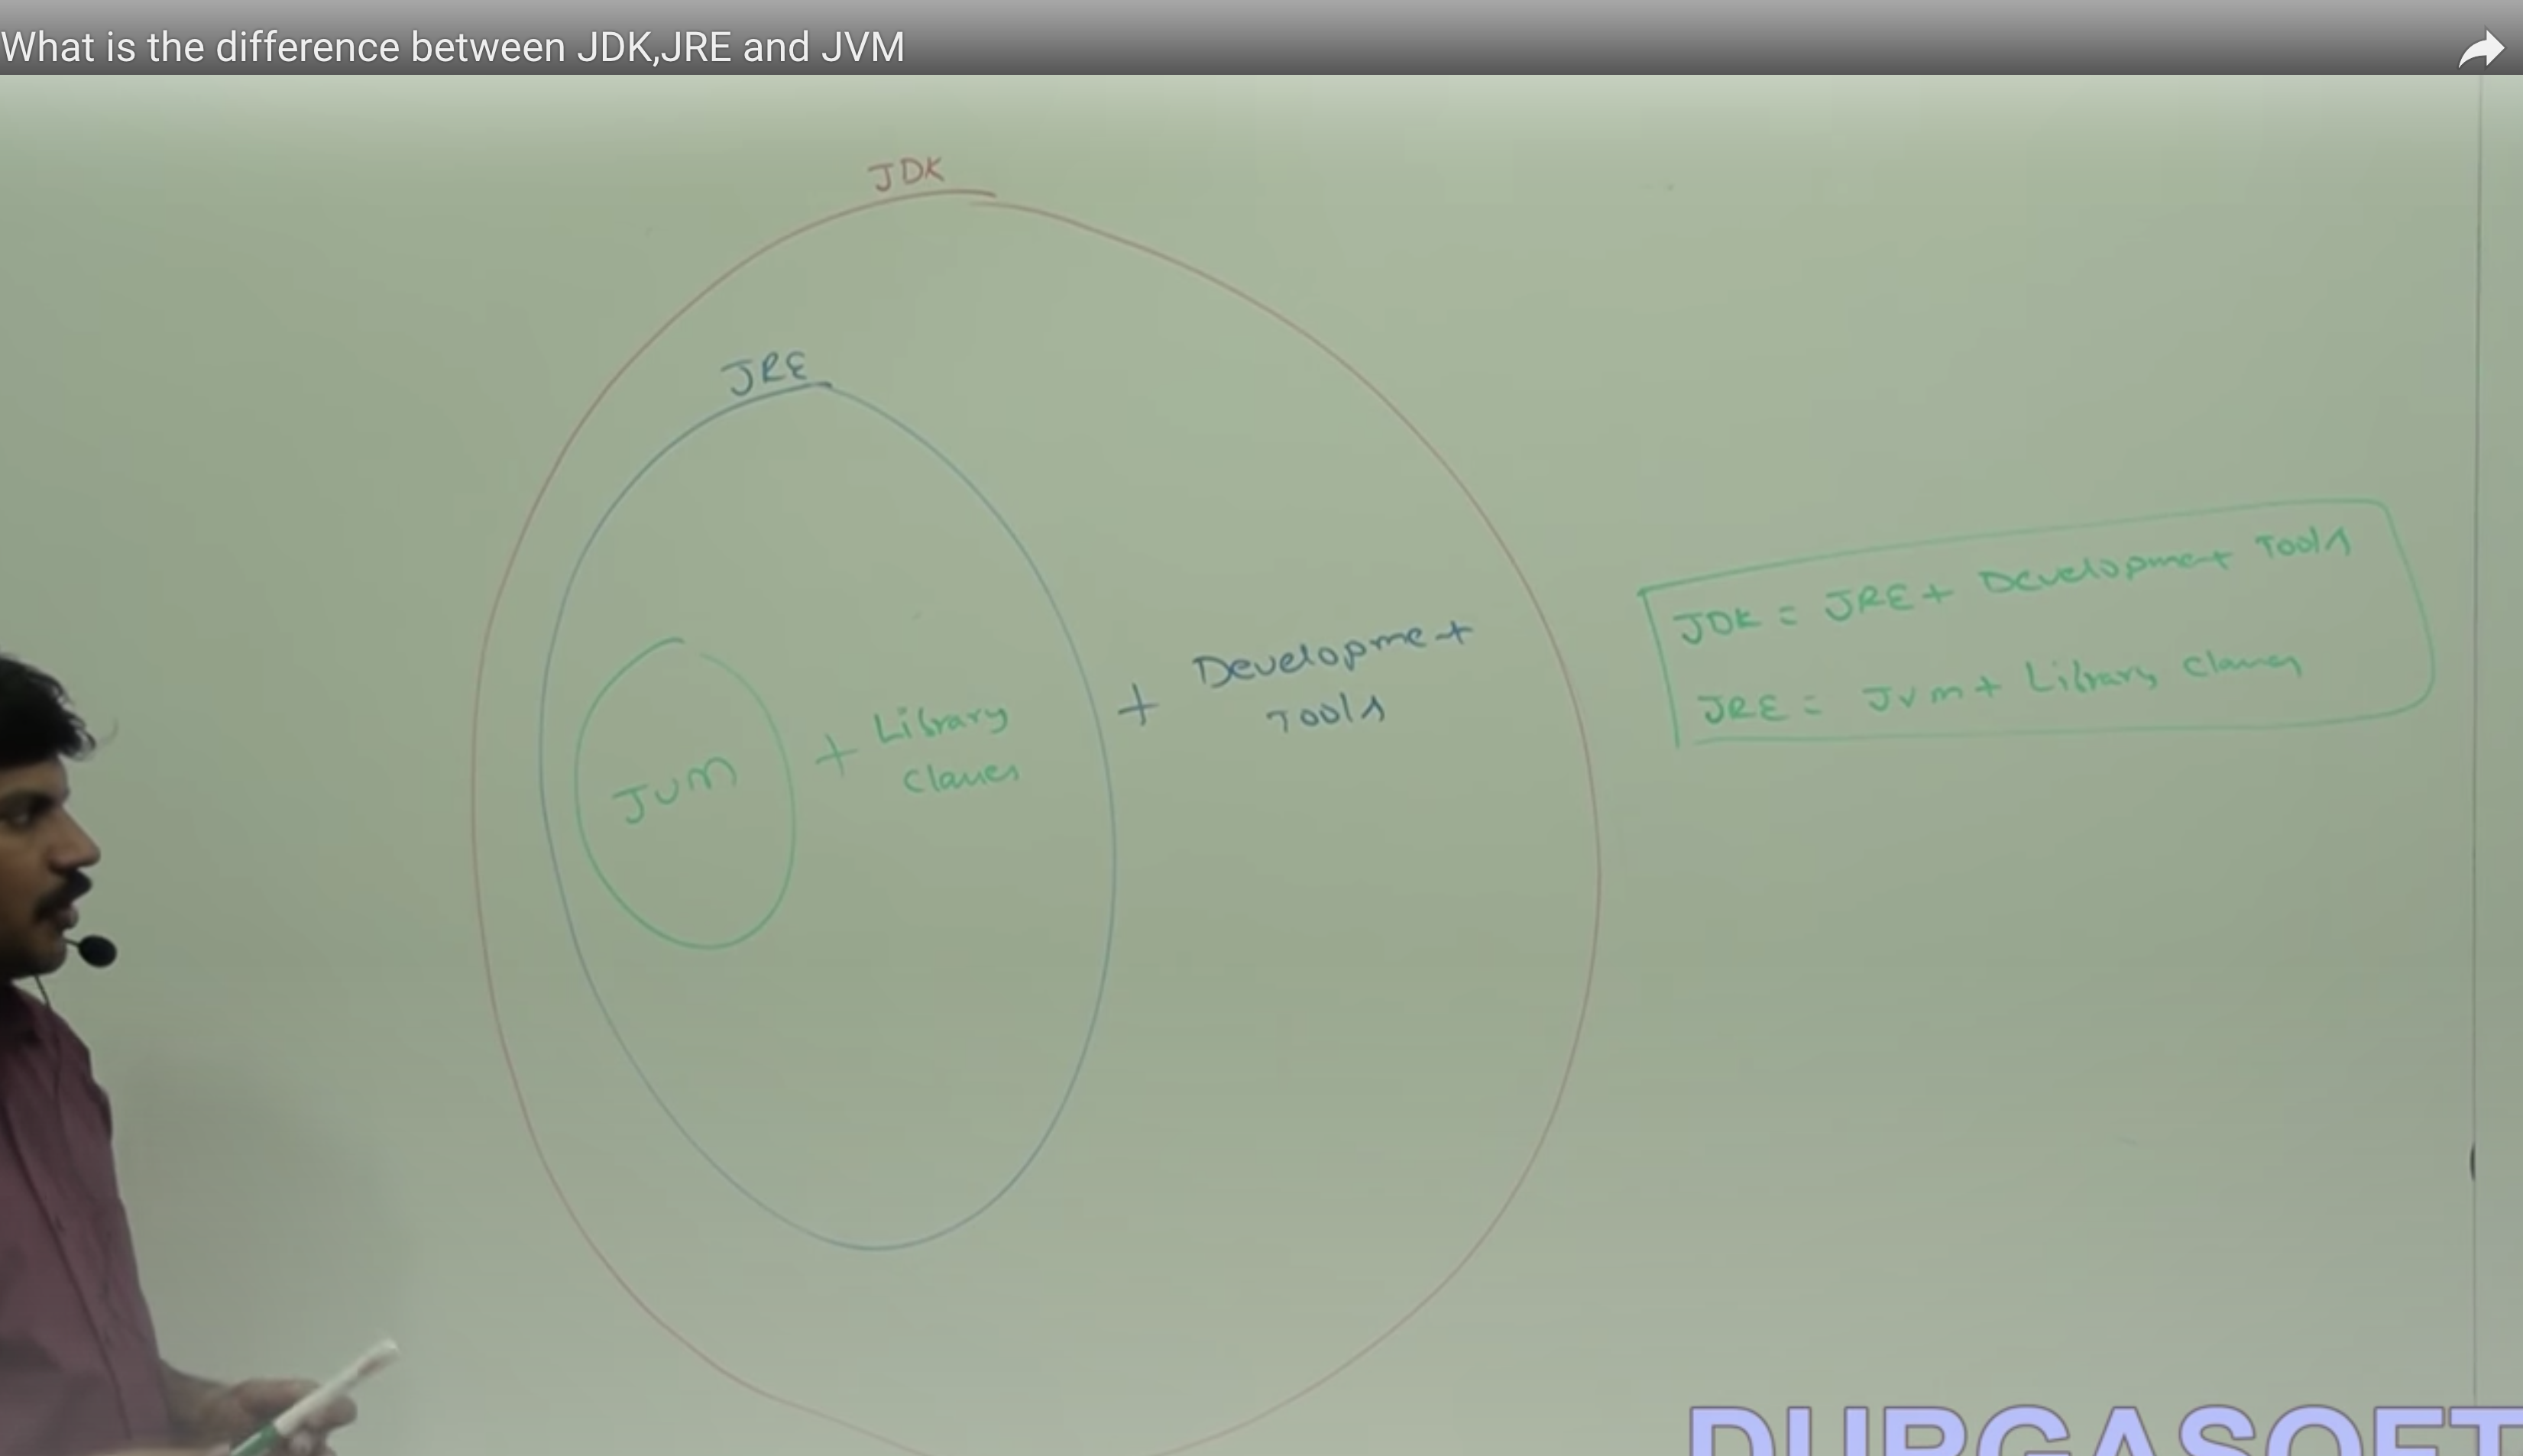 What is the difference between JDK,JRE and JVM
JDK
JRE
JVM
+ Library
Classes
+ Development
Tools
JDK = JRE + Development Tools
JRE = JVM + Library Classes
DURGASOFT